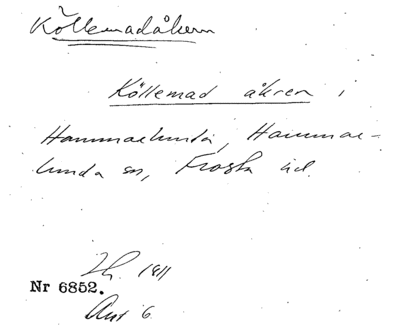 Köllemadåkern
Köllemad åkren i
Hammarlunda, Hammar-
lunda sn, Frosta hd.
1811
Nr 6852.
6